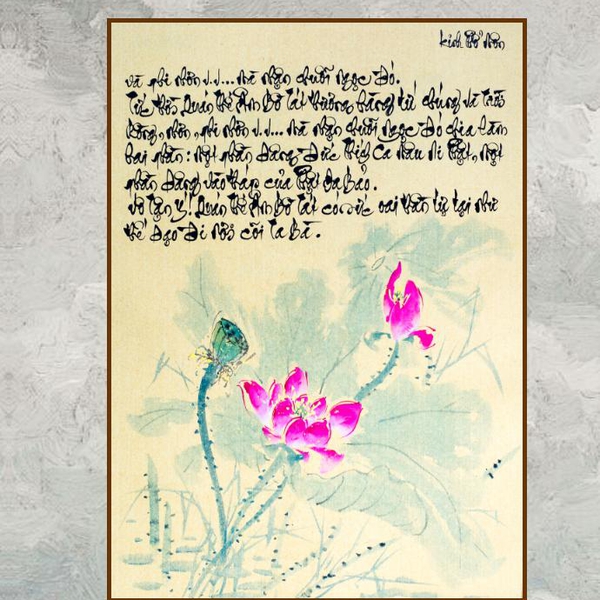 kinh Phổ Môn
và phi nhơn v.v... mà nhận chuỗi ngọc đó.
Tức thời Quán Thế Âm Bồ Tát thương hàng tứ chúng và trời
rồng, nhơn, phi nhơn v.v... mà nhận chuỗi ngọc đó chia làm
hai phần: một phần dâng đức Thích Ca Mâu Ni Phật, một
phần dâng vào tháp của Phật Đa Bảo.
Vô Tận Ý! Quán Thế Âm Bồ Tát có sức oai thần tự tại như
thế dạo đi nơi cõi Ta Bà.